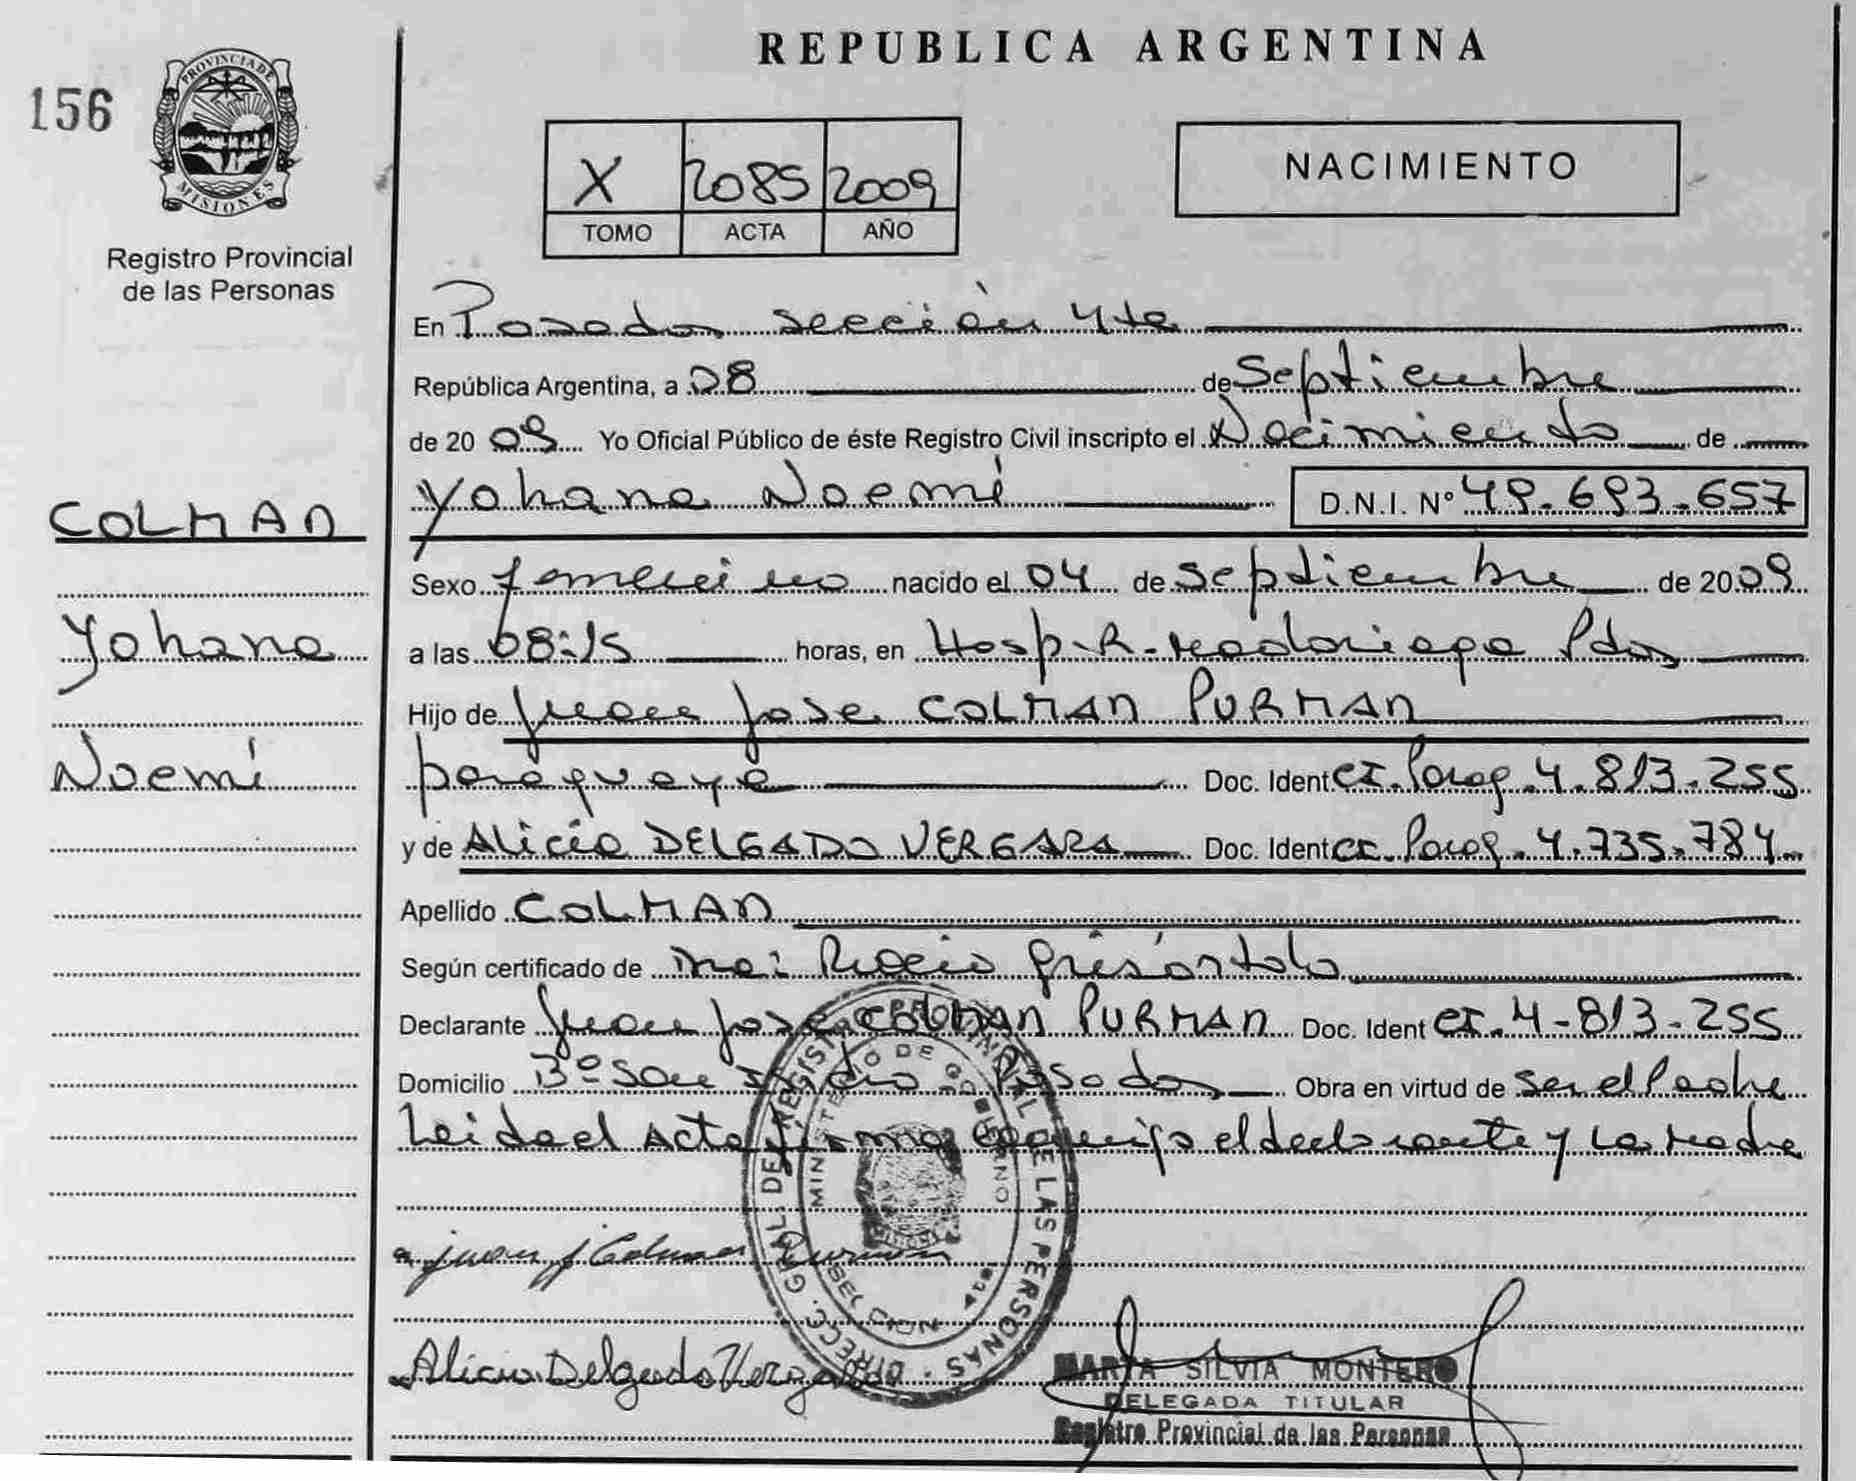 REPUBLICA ARGENTINA
156
PROVINCIA DE
MISIONES
Registro Provincial
de las Personas
X 2085 2009
TOMO ACTA AÑO
NACIMIENTO
En Posadas sección 4ta
República Argentina, a 08 de Septiembre
de 2009 Yo Oficial Público de éste Registro Civil inscripto el Nacimiento de
Yohana Noemí D.N.I. Nº 49.693.657
COLMAN
Sexo femenino nacido el 04 de Septiembre de 2009
Yohana
a las 08:15 horas, en Hosp. R. Madariaga Pdas
Hijo de Juan Jose COLMAN PURMAN
Noemí
paraguaya Doc. Ident CI. Parag. 4.813.255
y de Alicia DELGADO VERGARA Doc. Ident CI. Parag. 4.735.784
Apellido COLMAN
Según certificado de Rocio
Declarante Juan Jose COLMAN PURMAN Doc. Ident CI. 4-813-255
Domicilio Bº San Isidro Posadas Obra en virtud de ser el Padre
Leida el Acta firma conmigo el declarante y La Madre
DIRECC. GRAL. DEL REGISTRO PROVINCIAL DE LAS PERSONAS
MINISTERIO DE GOBIERNO
SECCION 4ta
MISIONES
Juan J Colman Purman
Alicia Delgado Vergara
MARTA SILVIA MONTERO
DELEGADA TITULAR
Registro Provincial de las Personas